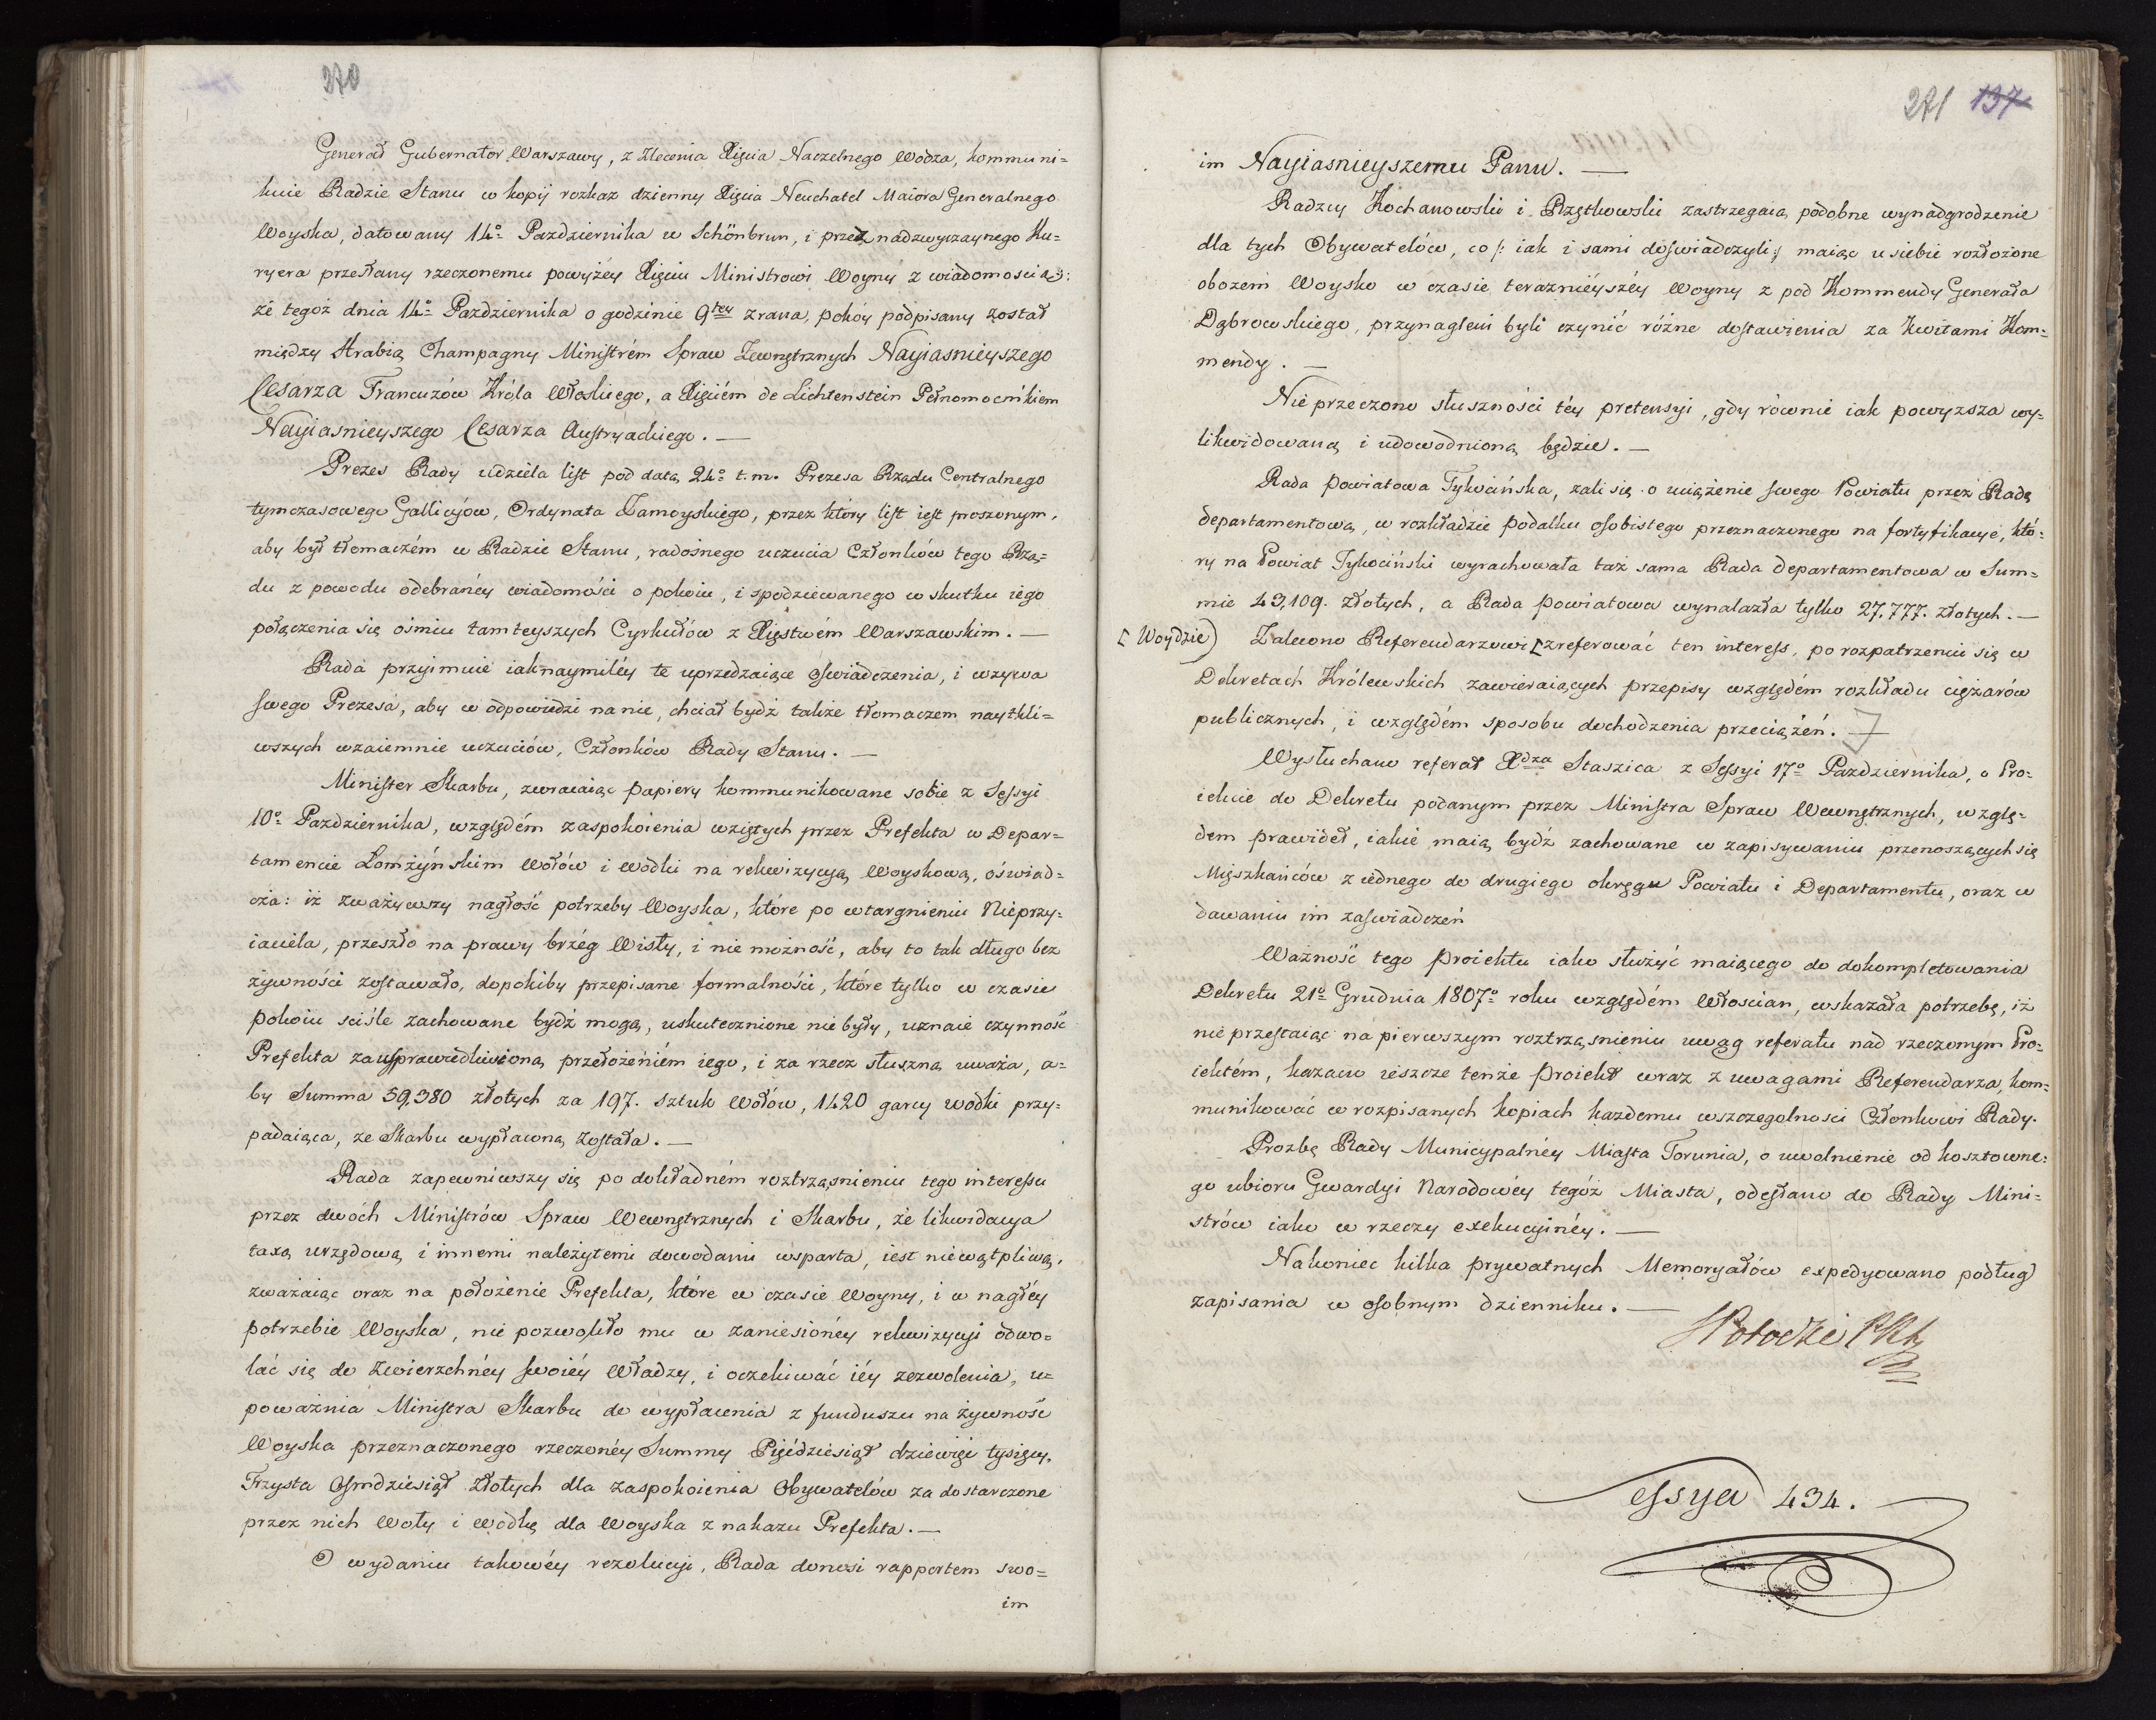 270
Generał Gubernator Warszawy, z zlecenia Xięcia Naczelnego Wodza, kommuni=
kuie Radzie Stanu w kopij rozkaz dzienny Xięcia Neuchatel Maiora Generalnego
Woyska, datowany 14º Pazdziernika w Schönbrun, i przez nadzwyczaynego Ku=
ryera przesłany rzeczonemu powyżéy Xięciu Ministrowi Woyny z wiadomoscią:
że tegoż dnia 14º Pazdziernika o godzinie 9tey zrana, pokóy podpisany został
między Hrabią Champagny Ministrém Spraw Zewnętrznych Nayiasnieyszego
Cesarza Francuzów Króla Włoskiego, a Xięciém de Lichtenstein Pełnomocnikiem
Nayiasnieyszego Cesarza Austryackiego. —
Prezes Rady udziela list pod datą 24º t. m. Prezesa Rządu Centralnego
tymczasowego Gallicyów, Ordynata Zamoyskiego, przez który list iest proszonym,
aby był tłomaczém w Radzie Stanu, radośnego uczucia Członków tego Rzą=
du z powodu odebranéy wiadomości o pokoiu, i spodziewanego w skutku iego
połączenia się ośmiu tamteyszych Cyrkułów z Xięstwém Warszawskim. —
Rada przyimuie iaknaymiléy te uprzedzaiące oświadczenia, i wzywa
swego Prezesa, aby w odpowiedzi na nie, chciał bydź także tłomaczem naytkli=
wszych wzaiemnie uczuciów, Członków Rady Stanu. —
Minister Skarbu, zwracaiąc papiery kommunikowane sobie z Sessyi
10º Pazdziernika, względém zaspokoienia wziętych przez Prefekta w Depar=
tamencie Łomżyńskim wołów i wódki na rekwizycyą Woyskową, oświad=
cza: iż zważywszy nagłość potrzeby Woyska, które po wtargnieniu Nieprzy=
iaciela, przeszło na prawy brzég Wisły, i nie możność, aby to tak długo bez
żywności zostawało, dopokiby przepisane formalności, które tylko w czasie
pokoiu sciśle zachowane bydź mogą, uskutecznione nie były, uznaie czynność
Prefekta za usprawiedliwioną przełożeniém iego, i za rzecz słuszną uważa, a=
by Summa 59,380 złotych za 197. sztuk wołów, 1420 garcy wódki przy=
padaiąca, ze Skarbu wypłaconą została. —
Rada zapewniwszy się po dokładném roztrząsnieniu tego interessu
przez dwóch Ministrów Spraw Wewnętrznych i Skarbu, że likwidacya
taxą urzędową i innemi należytemi dowodami wsparta, iest niewątpliwą,
zważaiąc oraz na położenie Prefekta, które w czasie Woyny, i w nagłéy
potrzebie Woyska, nie pozwoliło mu w zaniesionéy rekwizycyi odwo=
łać się do Zwierzchnéy swoiéy Władzy, i oczekiwać iéy zezwolenia, u=
poważnia Ministra Skarbu do wypłacenia z funduszu na żywność
Woyska przeznaczonego rzeczonéy Summy Pięćdziesiąt dziewięć tysięcy,
Trzysta Osmdziesiąt Złotych dla zaspokoienia Obywatelów za dostarczone
przez nich Woły i Wódkę dla Woyska z nakazu Prefekta. —
O wydaniu takowéy rezolucyi, Rada donosi rapportem swo=
im
271 137
im Nayiasnieyszemu Panu. —
Radzcy Kochanowski i Rzętkowski zastrzegaią podobne wynadgrodzenie
dla tych Obywatelów, co /: iak i sami doświadczyli :/ maiąc u siebie rozłożone
obozem Woysko w czasie teraznieyszéy Woyny z pod Kommendy Generała
Dąbrowskiego, przynagleni byli czynić różne dostawienia za kwitami Kom=
mendy. —
Nie przeczono słuszności téy pretensyi, gdy równie iak powyższa wy=
likwidowaną i udowodnioną będzie. —
Rada Powiatowa Tykocińska, żali się o uciążenie swego Powiatu przez Radę
departamentową, w rozkładzie podatku osobistego przeznaczonego na fortyfikacye, któ=
ry na Powiat Tykociński wyrachowała taż sama Rada departamentowa w Sum=
mie 43,109. złotych, a Rada powiatowa wynalazła tylko 27,777. złotych. —
[Woydzie) Zalecono Referendarzowi [ zreferować ten interess, po rozpatrzeniu się w
Dekretach Królewskich zawieraiących przepisy względém rozkładu ciężarów
publicznych, i względém sposobu dochodzenia przeciążeń. —
Wysłuchano referat Xdza Staszica z Sessyi 17º Pazdziernika, o Pro=
iekcie do Dekretu podanym przez Ministra Spraw Wewnętrznych, wzglę=
dem prawideł, iakie maią bydź zachowane w zapisywaniu przenoszących się
Mięszkańców z iednego do drugiego okręgu Powiatu i Departamentu, oraz w
dawaniu im zaswiadczeń
Ważność tego proiektu iako służyć maiącego do dokompletowania
Dekretu 21º Grudnia 1807º roku względém Włościan, wskazała potrzebę, iż
nie przestaiąc na pierwszym roztrząsnieniu uwag referatu nad rzeczonym Pro=
iektém, kazano ieszcze tenże proiekt wraz z uwagami Referendarza, kom=
munikować w rozpisanych kopiach każdemu wszczegolnosci Członkowi Rady.
Prozbę Rady Municypalnéy Miasta Torunia, o uwolnienie od kosztowne=
go ubioru Gwardyi Narodowéy tegóż Miasta, odesłano do Rady Mini=
strów iako w rzeczy exekucyinéy. —
Nakoniec kilka prywatnych Memoryałów expedyowano podług
zapisania w osobnym dzienniku. —
SPotocki
Sessya 434.